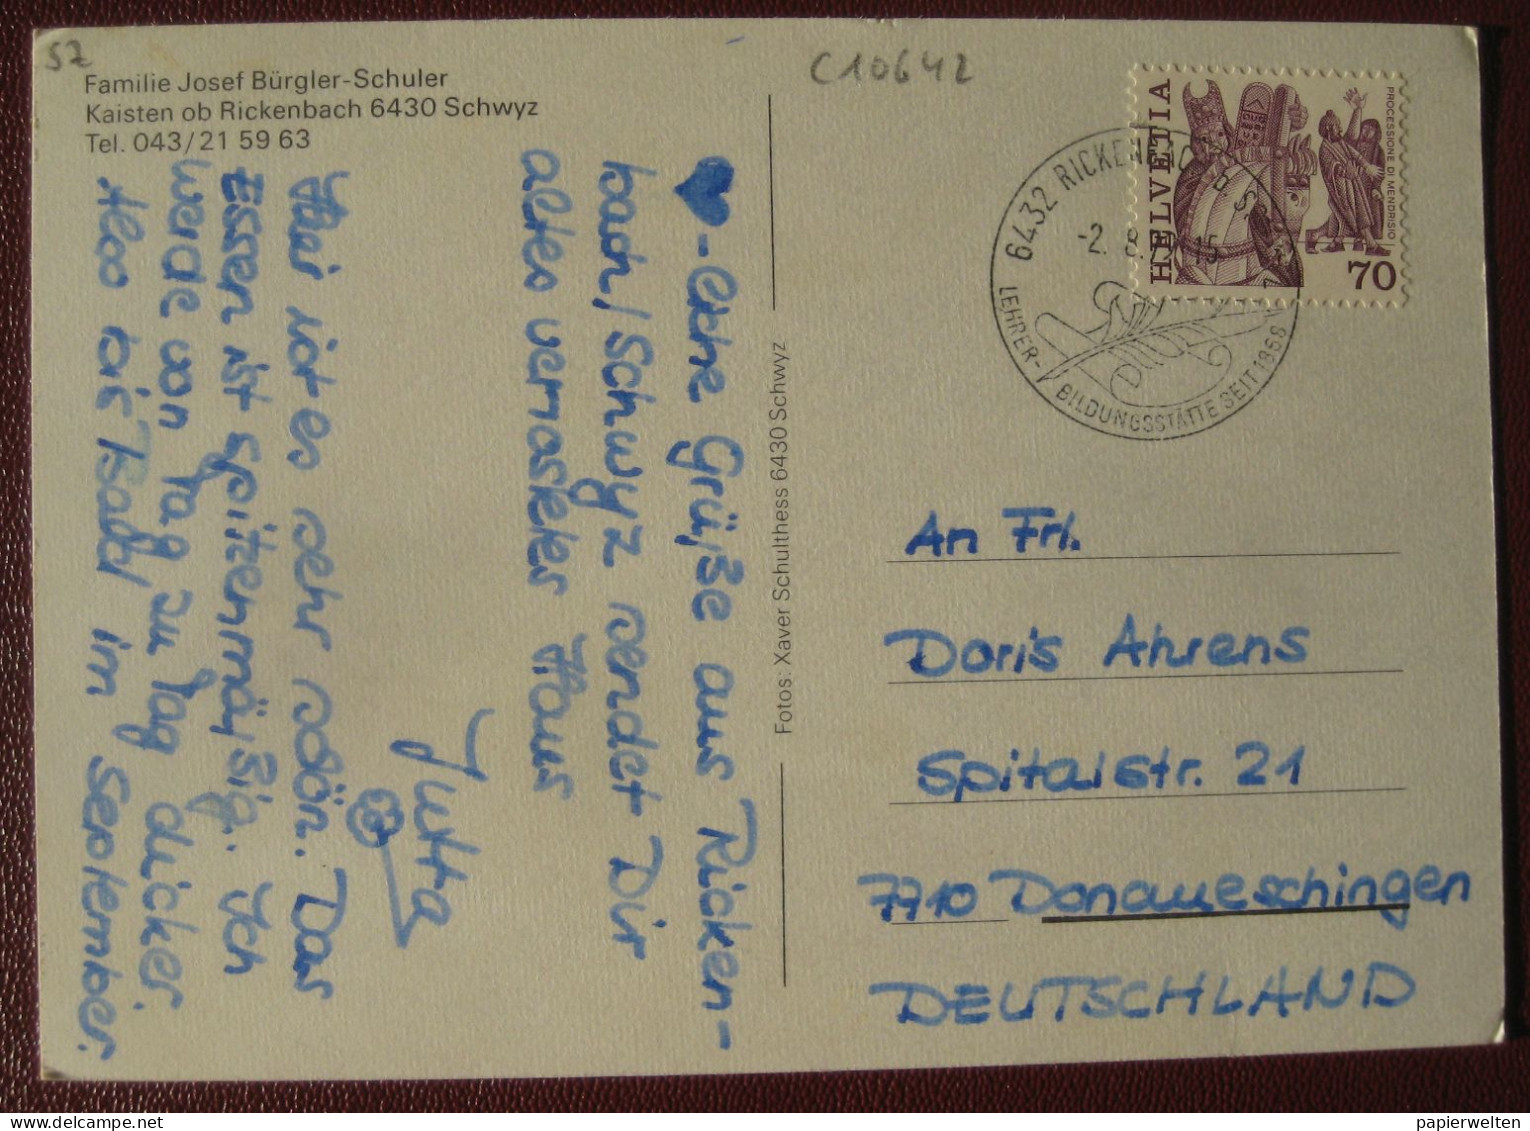 SZ
C10642
Familie Josef Bürgler-Schuler
Kaisten ob Rickenbach 6430 Schwyz
Tel. 043/21 59 63
♥-liche Grüße aus Ricken-
bach/Schwyz sendet Dir
altes vernasktes Haus
Jutta
Hier ist es sehr schön. Das
Essen ist spitzenmäßig. Ich
werde von Tag zu Tag dicker.
Also bis Bald im September.
Fotos: Xaver Schulthess 6430 Schwyz
HELVETIA
PROCESSIONE DI MENDRISIO
70
6432 RICKENBACH B. S
-2. 8. 15
LEHRER-BILDUNGSSTÄTTE SEIT 1856
An Frl.
Doris Ahrens
Spitalstr. 21
7710 Donaueschingen
DEUTSCHLAND
papierwelten